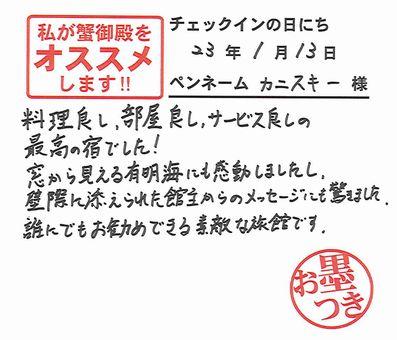 私が蟹御殿を
オススメ
します!!
チェックインの日にち
23年1月13日
ペンネーム カニスキー 様
料理良し,部屋良し,サービス良しの
最高の宿でした!
窓から見える有明海にも感動しましたし,
壁際に添えられた館主からのメッセージにも驚きました.
誰にでもお勧めできる素敵な旅館です.
お墨つき